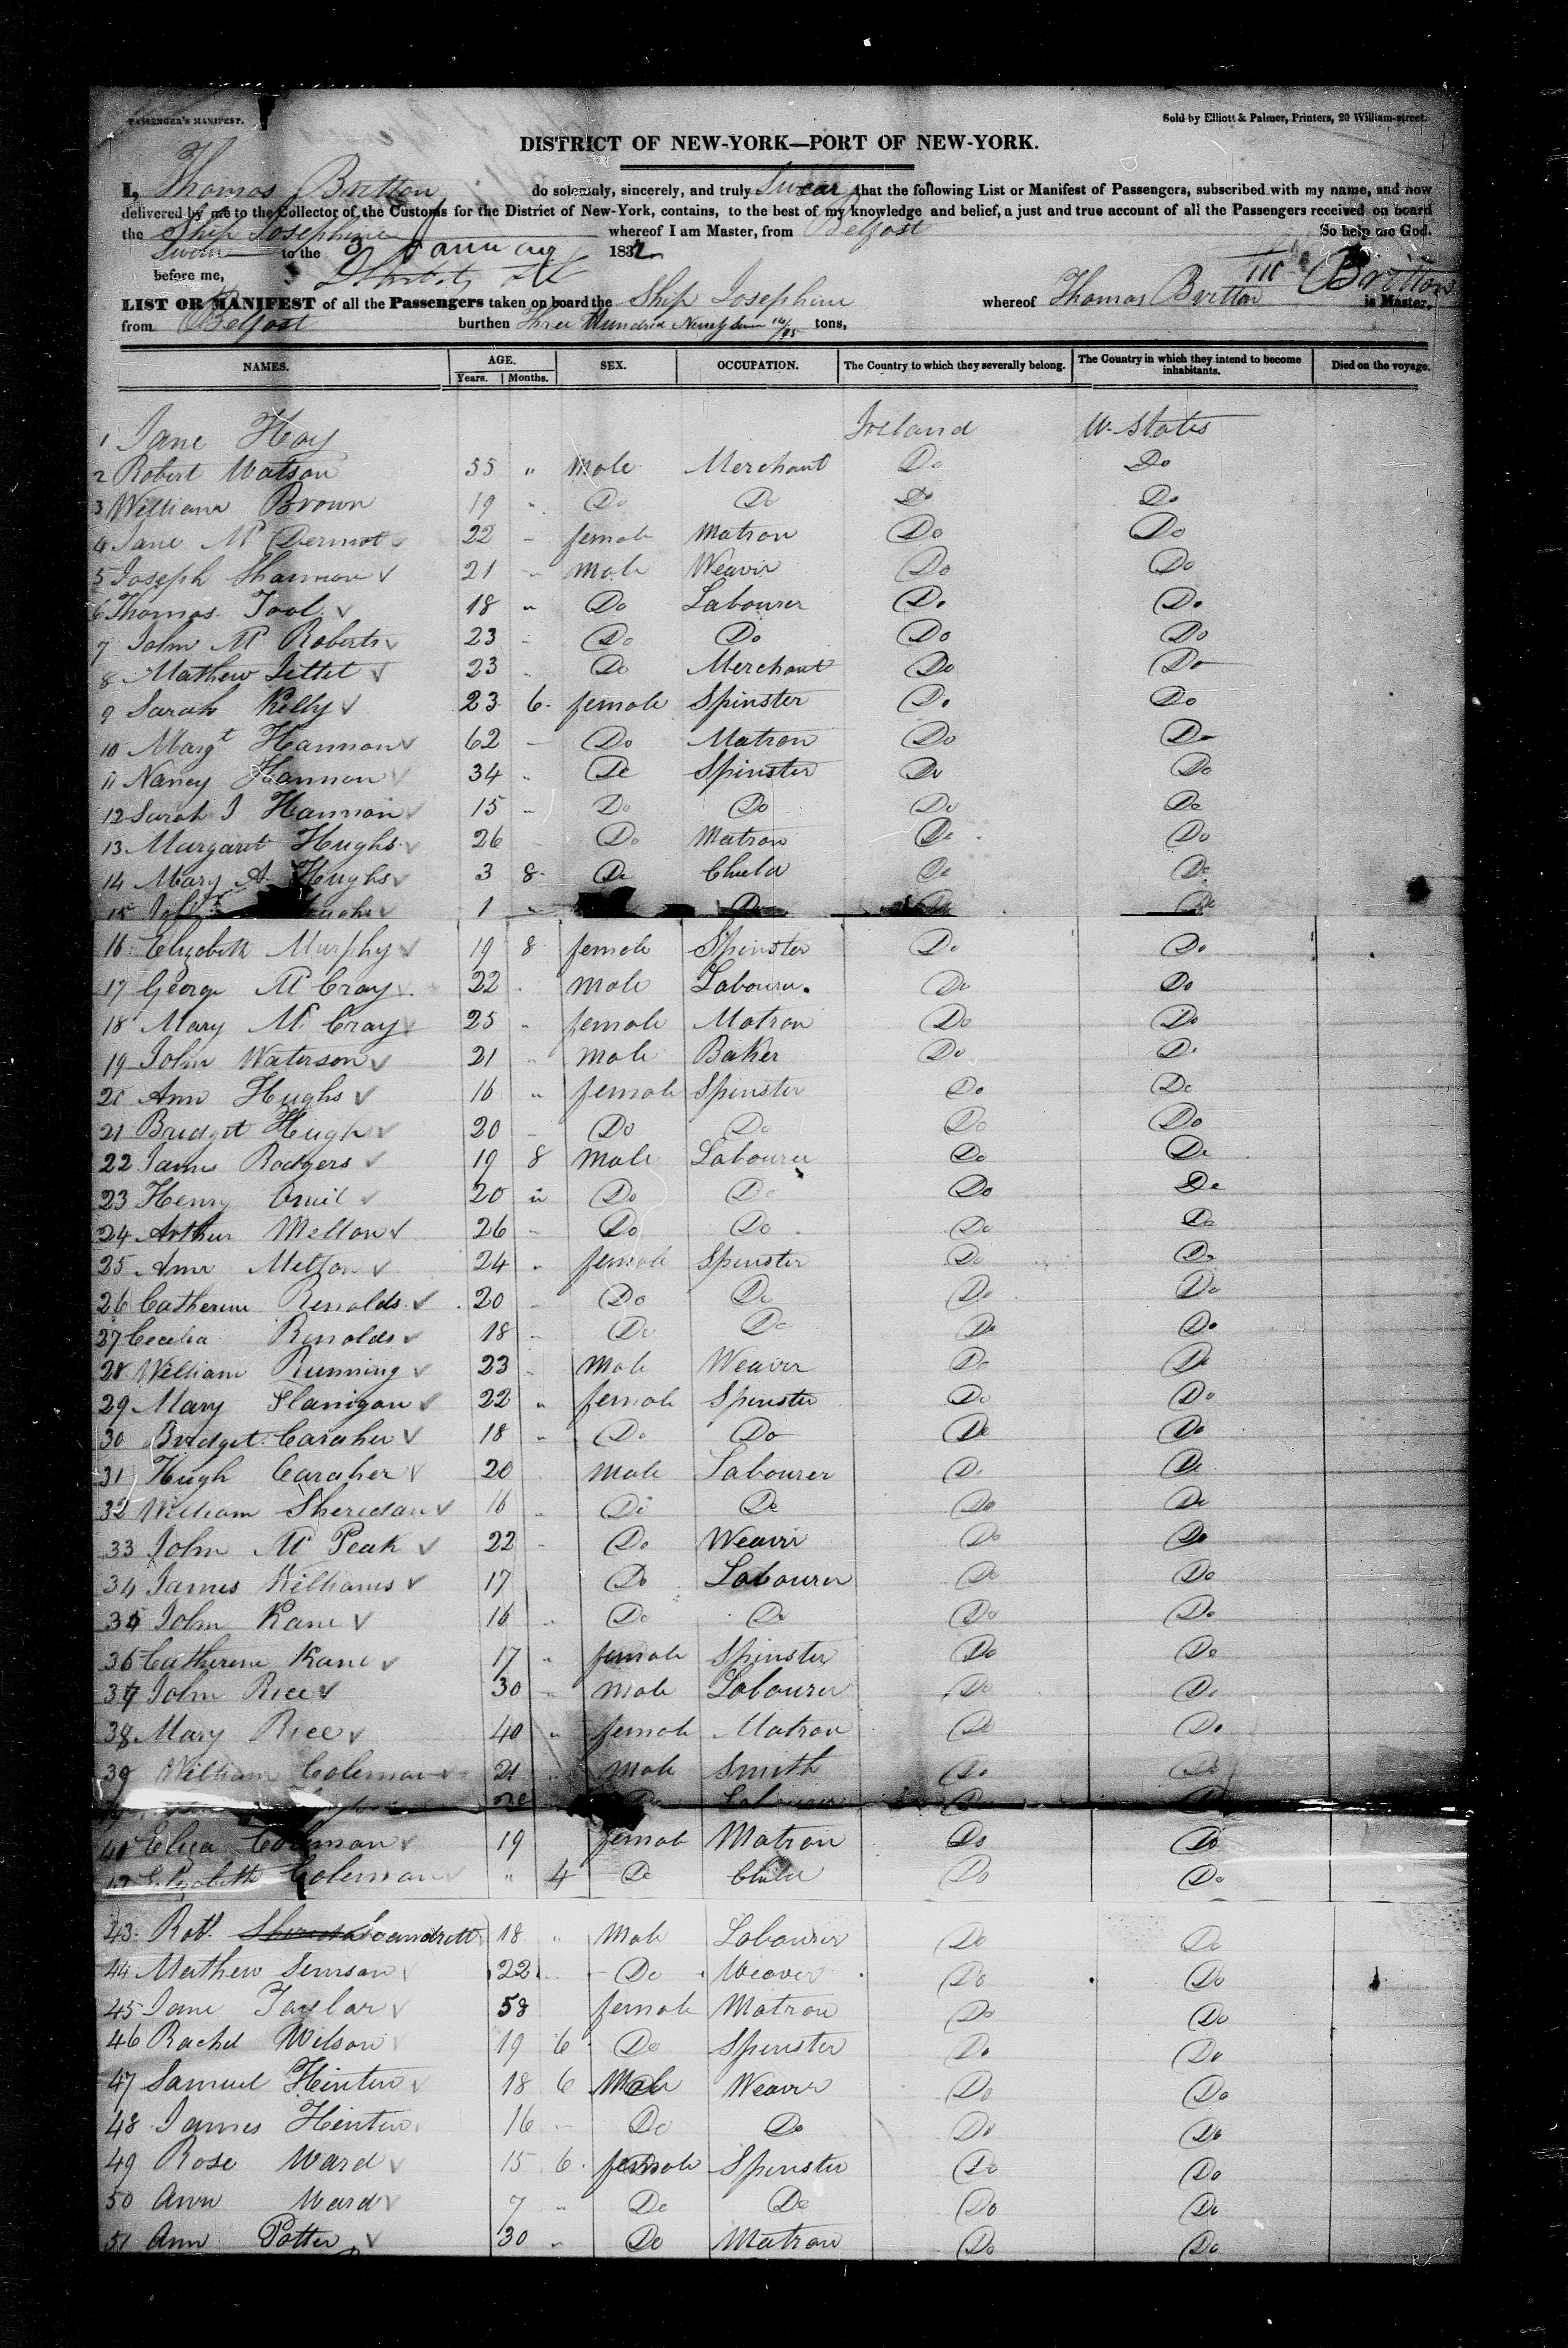 PASSENGER'S MANIFEST.
Sold by Elliott & Palmer, Printers, 20 William-street.
DISTRICT OF NEW-YORK—PORT OF NEW-YORK.
I, Thomas Britton do solemnly, sincerely, and truly Swear that the following List or Manifest of Passengers, subscribed with my name, and now
delivered by me to the Collector of the Customs for the District of New-York, contains, to the best of my knowledge and belief, a just and true account of all the Passengers received on board
the Ship Josephine whereof I am Master, from Belfast So help me God.
Sworn to the 3 January 1832
before me, Britton
LIST OR MANIFEST of all the Passengers taken on board the Ship Josephine whereof Thomas Britton is Master,
from Belfast burthen Three Hundred tons,
NAMES. AGE. SEX. OCCUPATION. The Country to which they severally belong. The Country in which they intend to become inhabitants. Died on the voyage.
Years. Months.
1 Jane Hay Ireland U. States
2 Robert Watson 35 " male Merchant Do Do
3 William Brown 19 " Do Do Do Do
4 Jane Mc Dermot 22 " female Matron Do Do
5 Joseph Shannon 21 " male Weaver Do Do
6 Thomas Tool 18 " Do Labourer Do Do
7 John Mc Roberts 23 " Do Do Do Do
8 Mathew 23 " Do Merchant Do Do
9 Sarah Kelly 23 6 female Spinster Do Do
10 Margt Hannon 62 " Do Matron Do Do
11 Nancy Hannon 34 " Do Spinster Do Do
12 Sarah J Hannon 15 " Do Do Do Do
13 Margaret Hughs 26 Do Matron Do Do
14 Mary A Hughs 3 8 Do Child Do Do
15 1 " Do Do Do
16 Elizabeth Murphy 19 8 female Spinster Do Do
17 George Mc Cray 22 " male Labourer Do Do
18 Mary Mc Cray 25 " female Matron Do Do
19 John Waterson 21 " male Baker Do Do
20 Ann Hughs 16 " female Spinster Do Do
21 Bridget Hugh 20 " Do Do Do Do
22 James Rodgers 19 8 male Labourer Do Do
23 Henry 20 " Do Do Do Do
24 Arthur Mellon 26 " Do Do Do Do
25 Ann Mellon 24 " female Spinster Do Do
26 Catherine Renolds 20 " Do Do Do Do
27 Cecelia Renolds 18 " Do Do Do Do
28 William Running 23 " male Weaver Do Do
29 Mary Flanigan 22 " female Spinster Do Do
30 Bridget Caraher 18 " Do Do Do Do
31 Hugh Caraher 20 male Labourer Do Do
32 William Sheridan 16 " Do Do Do Do
33 John Mc Peak 22 " Do Weaver Do Do
34 James Williams 17 Do Labourer Do Do
35 John Kane 16 " Do Do Do Do
36 Catherine Kane 17 " female Spinster Do Do
37 John Rice 30 " male Labourer Do Do
38 Mary Rice 40 " female Matron Do Do
39 William Coleman 21 " male Smith Do Do
Labourer Do Do
Eliza Coleman 19 female Matron Do Do
Elizabeth Coleman " 4 Do Child Do Do
43 Robt. 18 " male Labourer Do Do
44 Mathew 22 " Do Weaver Do Do
45 Jane Taylar 58 female Matron Do Do
46 Rachel Wilson 19 6 Do Spinster Do Do
47 Samuel Hinten 18 6 Male Weaver Do Do
48 James Hinten 16 " Do Do Do Do
49 Rose Ward 15 6 female Spinster Do Do
50 Ann Ward 7 " Do Do Do Do
51 Ann Potter 30 " Do Matron Do Do